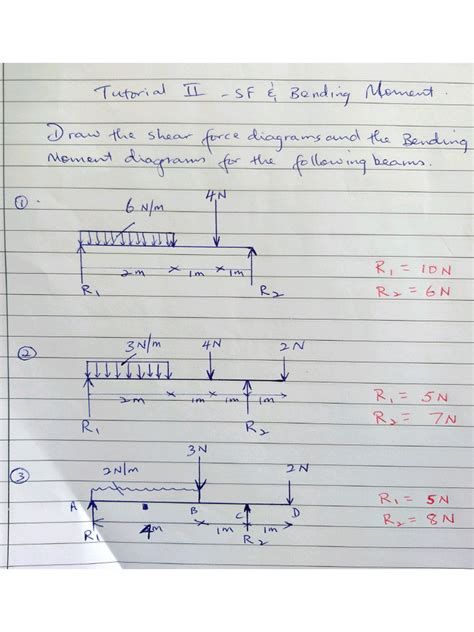 Tutorial II - SF & Bending Moment.
Draw the shear force diagrams and the Bending
Moment diagrams for the following beams.
①.
4N
6 N/m
2m × 1m × 1m
R₁
R₂
R₁ = 10N
R₂ = 6N
②
3N/m
4N
2N
2m × 1m × 1m 1m
R₁
R₂
R₁ = 5N
R₂ = 7N
③
3N
2N/m
2N
A
B
C
D
4m × 1m 1m
R₁
R₂
R₁ = 5N
R₂ = 8N